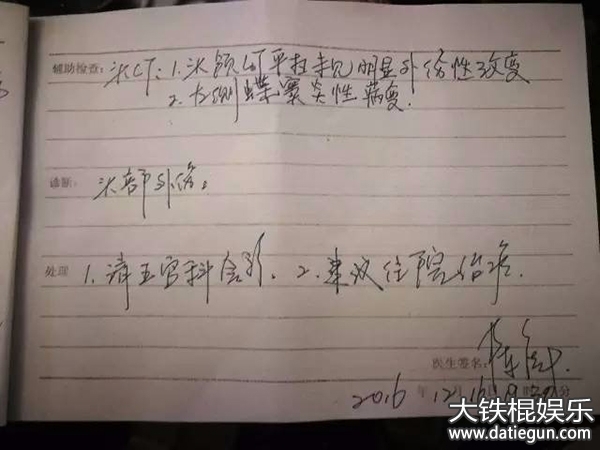 辅助检查: 头CT: 1. 头颅CT平扫未见明显外伤性改变
2. 左侧蝶窦炎性病变.
诊断: 头部外伤。
处理 1. 请五官科会诊. 2. 建议住院治疗.
医生签名:
2016 年 12 月 16 日 时 分
大铁棍娱乐
www.datiegun.com